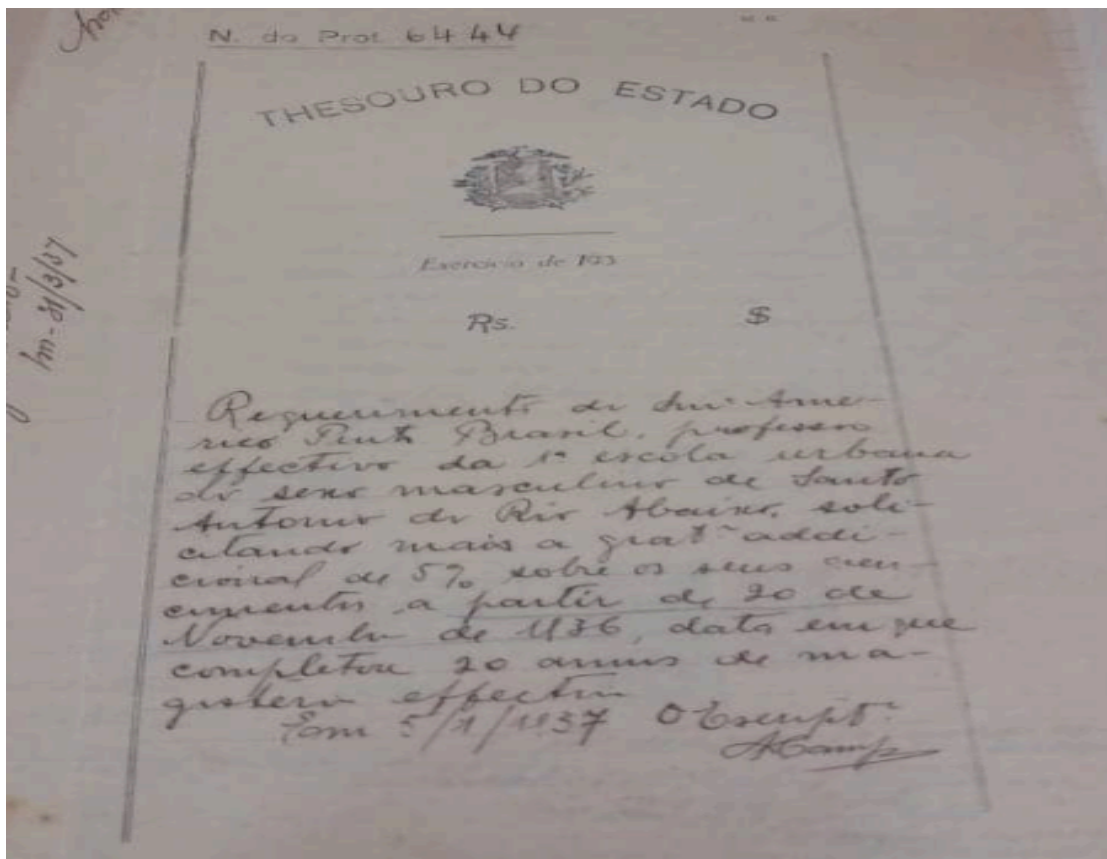 N. do Prot. 6444
THESOURO DO ESTADO
Exercicio de 193
Rs. $
Requerimento de Ame-
rico Brasil, professor
effectivo da 1ª escola urbana
do sexo masculino de Santo
Antonio do Rio Abaixo, soli-
citando mais a gratᵐ addi-
cional de 5% sobre os seus ven-
cimentos a partir de 20 de
Novembro de 1936, data em que
completou 20 annos de ma-
gisterio effectivo
Em 5/1/1937 O Escriptº